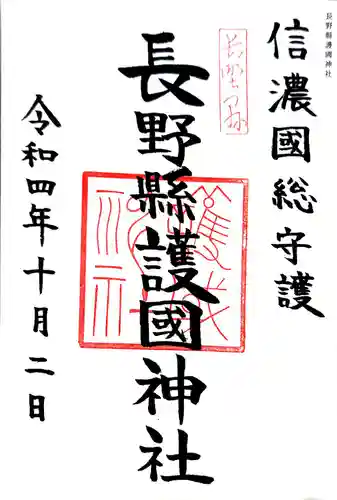 長野縣護國神社
信濃國総守護
長野県
長野縣護國神社
令和四年十月二日